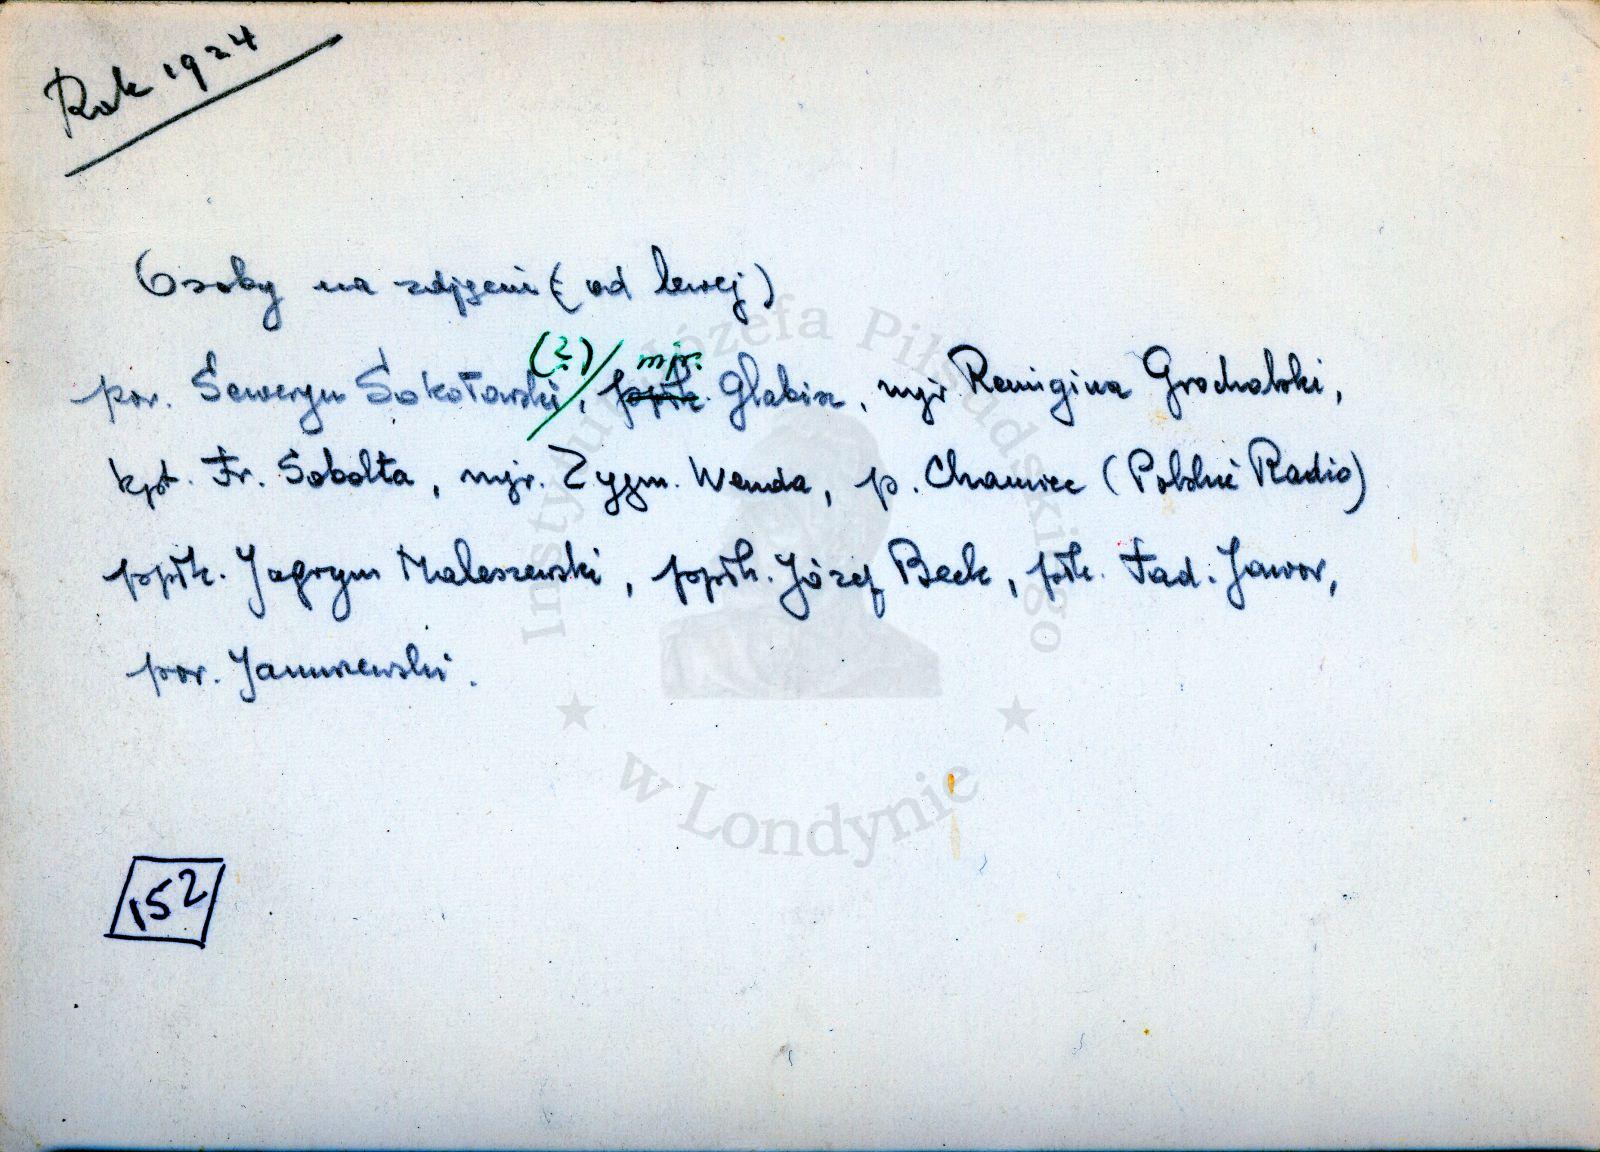 Rok 1924
Osoby na zdjęciu (od lewej)
(?) mjr.
por. Seweryn Sokołowski, ppłk. Glabisz, mjr Remigiusz Grocholski,
kpt. Fr. Sobolta, mjr. Zygm. Wenda, p. Chamiec (Polskie Radio)
ppłk. Jagrym Maleszewski, ppłk. Józef Beck, płk. Tad. Jawor,
por. Januszewski.
152
Instytut Józefa Piłsudskiego
w Londynie